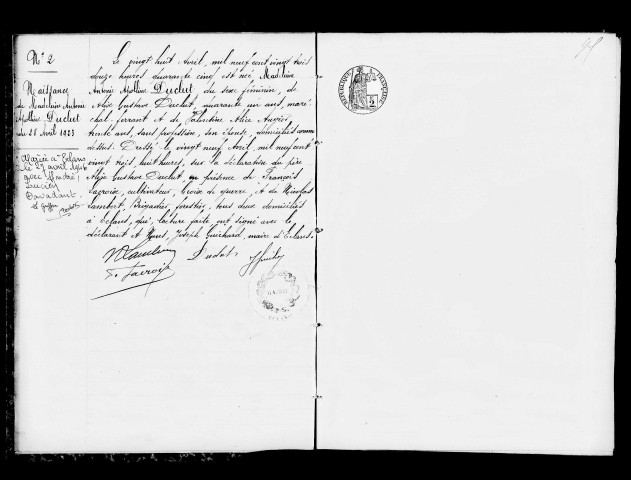 N° 2
Naissance
de Madeleine Antonie
Apolline Duclut
du 28 Avril 1923
Mariée à Eclans
le 27 avril 1946
avec André
Lucien
Le vingt huit Avril, mil neuf cent vingt trois
douze heures quarante cinq est née Madeleine
Antonie Apolline Duclut du sexe féminin, de
Alix Gustave Duclut, quarante un ans, maré-
chal-ferrant et de Valentine Alice
trente ans, sans profession, son épouse, domiciliés comme
dessus. Dressé le vingt neuf Avril, mil neuf cent
vingt trois, huit heures, sur la déclaration du père
Alix Gustave Duclut, en présence de François
Lacroix, cultivateur, Croix de guerre, et de Nicolas
Lambert, Brigadier forestier, tous deux domiciliés
à Eclans, qui, lecture faite ont signé avec le
déclarant et Nous, Joseph Guichard, maire d'Eclans.
Duclut
F. Lacroix
REPUBLIQUE FRANÇAISE
2